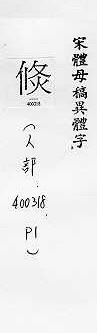 宋體母稿異體字
倐
400318
（人部．400318．P1）